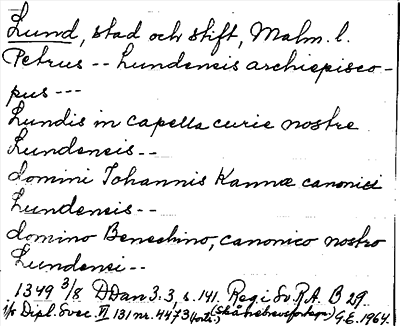 Lund, stad och stift, Malm. l.
Petrus -- Lundensis archiepisco-
pus ---
Lundis in capella curie nostre
Lundensis --
domini Johannis Kannæ canonici
Lundensis --
domino Benechino, canonico nostro
Lundensi --
1349 3/8 DDan 3.3, s. 141. Reg. i Sv. R.A. B 29.
i/o Dipl. Svec. VI 131 nr. 4473 G.E. 1964.